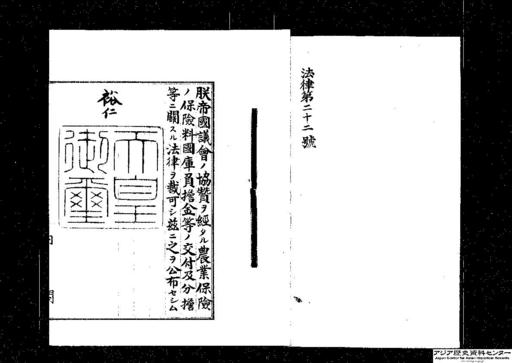 法律第二十二號
朕帝國議會ノ協贊ヲ經タル農業保險
ノ保險料國庫負擔金等ノ交付及分擔
等ニ關スル法律ヲ裁可シ茲ニ之ヲ公布セシム
裕仁
天皇
御璽
アジア歴史資料センター
Japan Center for Asian Historical Records